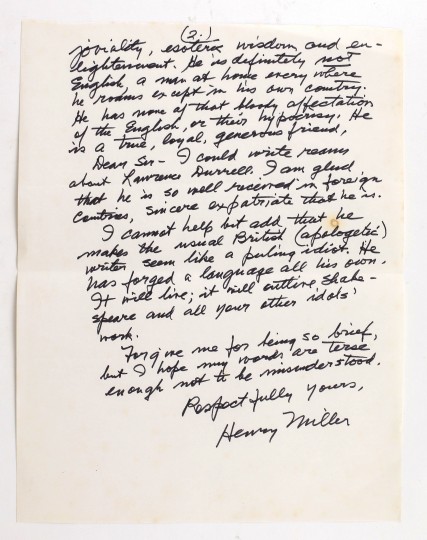 (2.)
joviality, esoteric wisdom and en-
lightenment. He is definitely not
English, a man at home every where
he roams except in his own country.
He has none of that bloody affectation
of the English, or their hypocrisy. He
is a true, loyal, generous friend,
Dear Sir - I could write reams
about Lawrence Durrell. I am glad
that he is so well received in foreign
countries, sincere expatriate that he is.
I cannot help but add that he
makes the usual British (apologetic)
writer seem like a puling idiot. He
has forged a language all his own.
It will live; it will outlive Shake-
speare and all your other idols'
work.
Forgive me for being so brief,
but I hope my words are terse
enough not to be misunderstood.
Respectfully yours,
Henry Miller